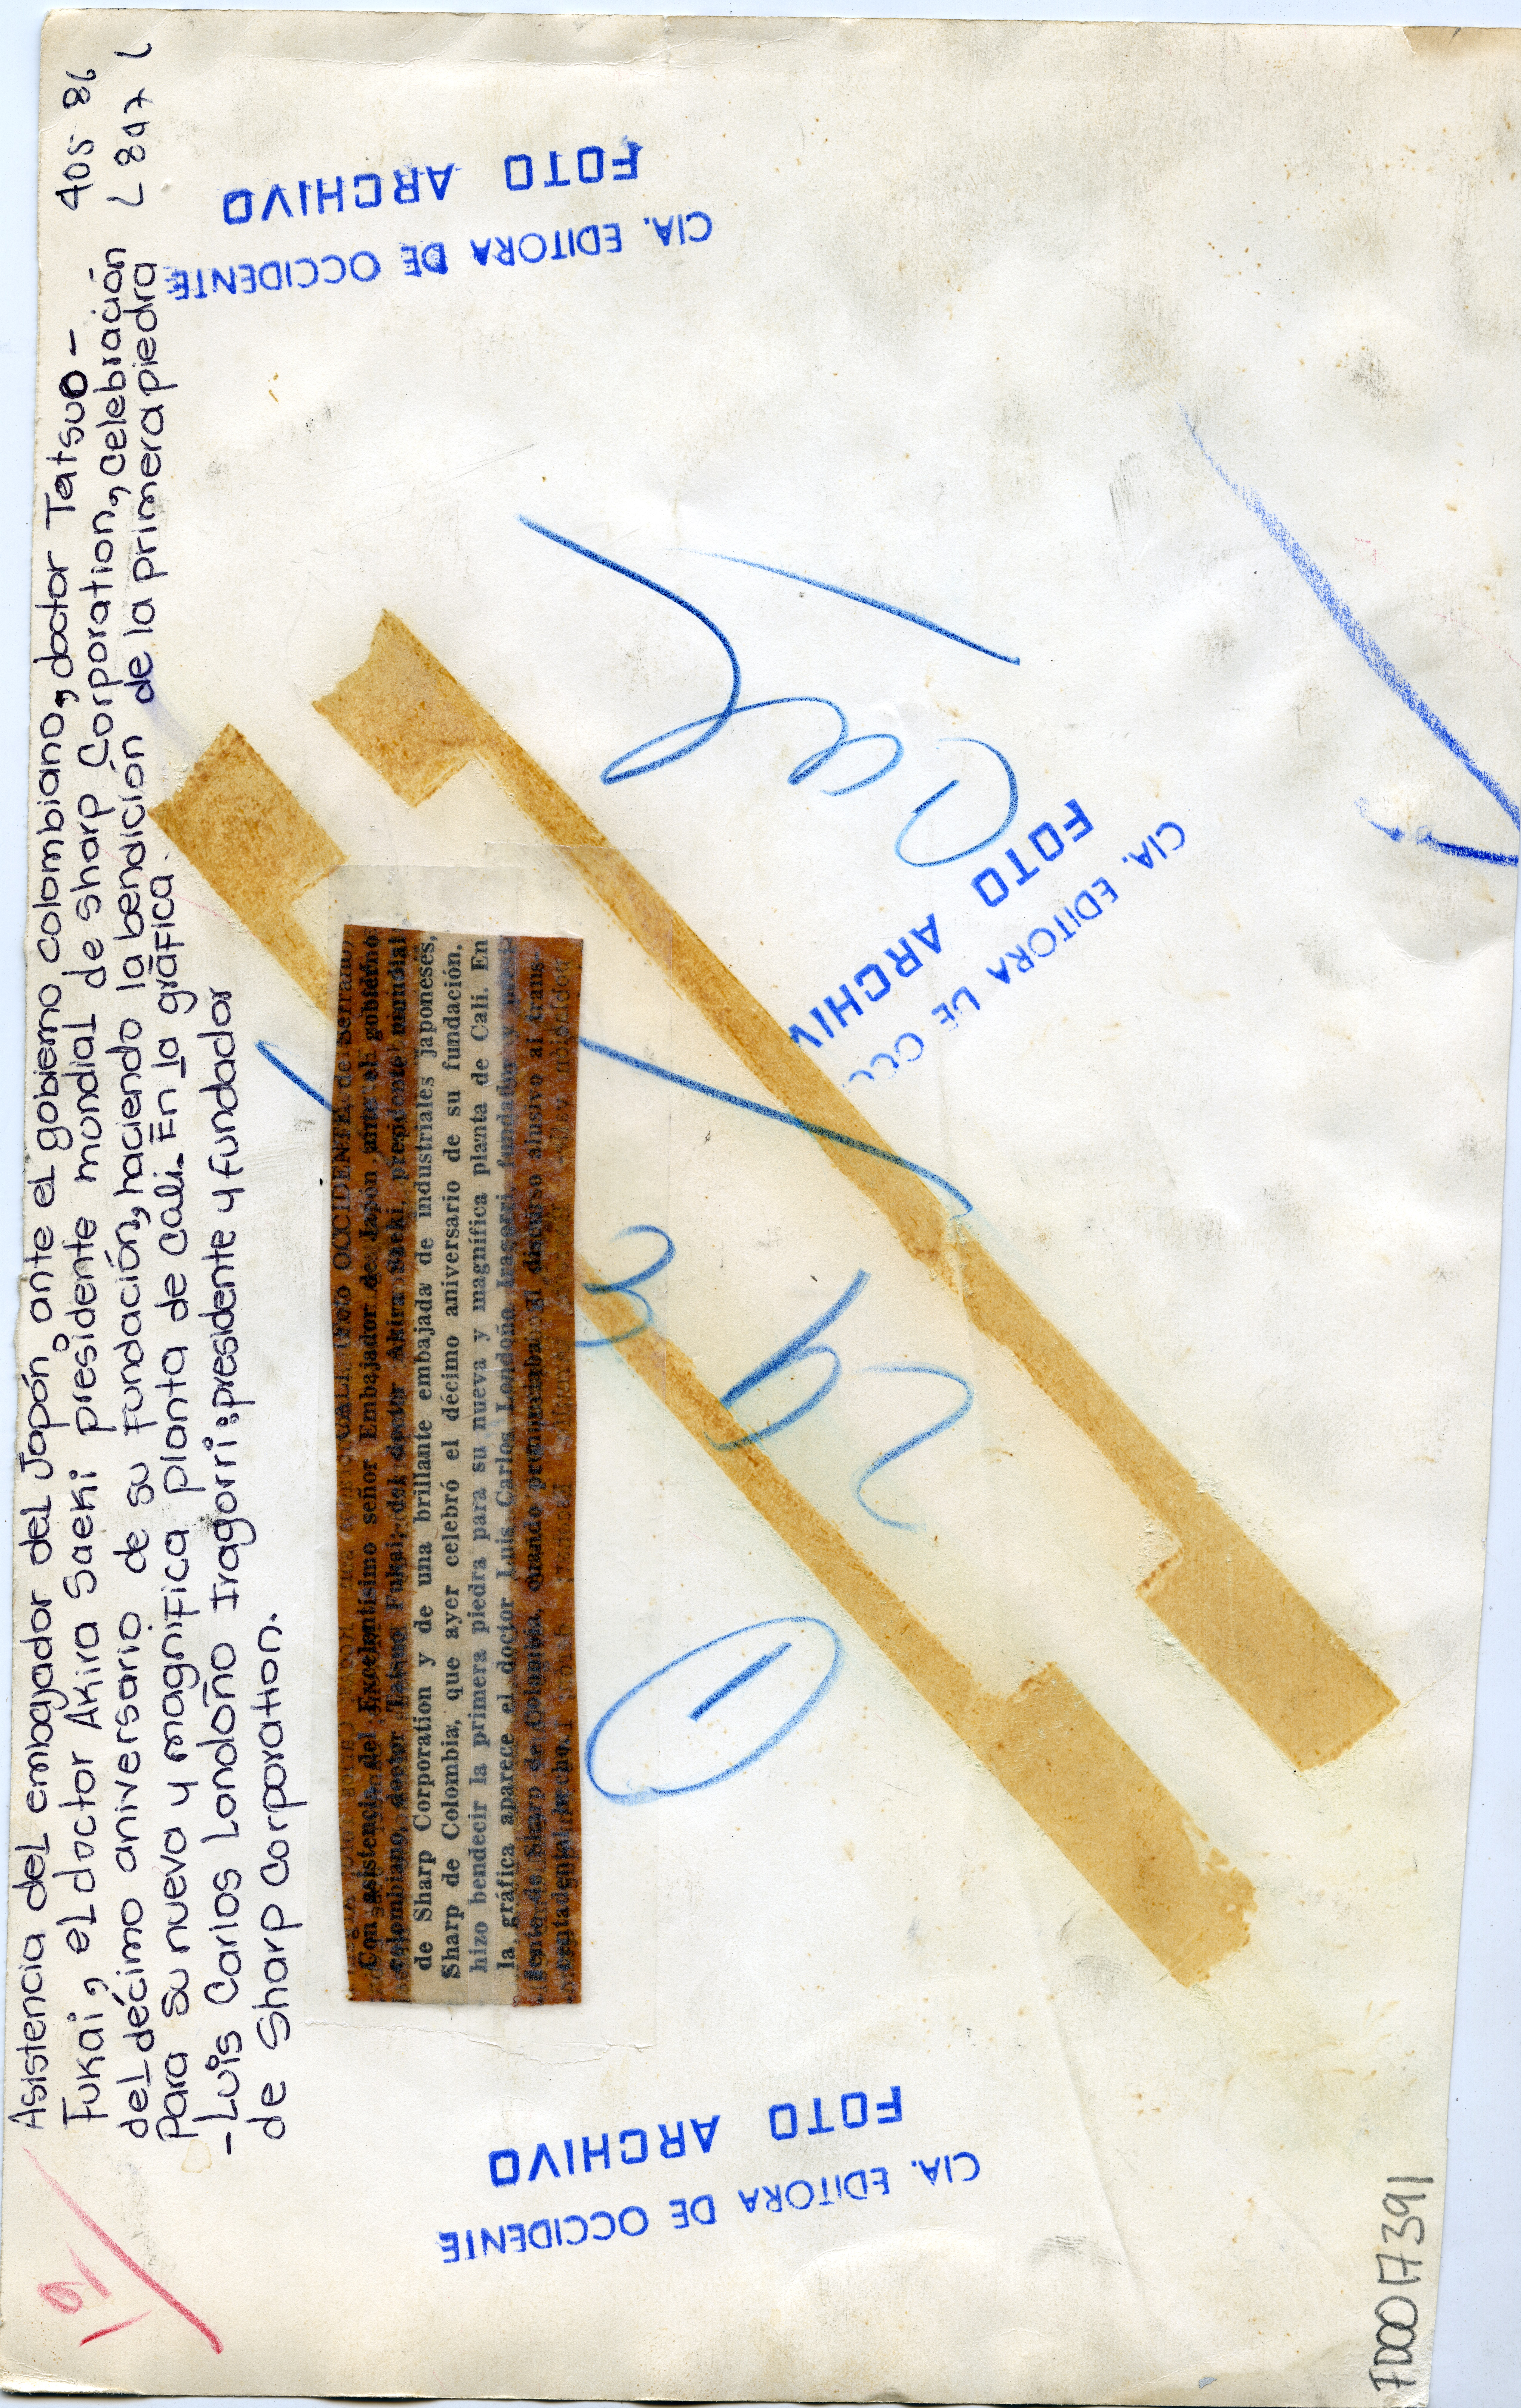 Asistencia del embajador del Japón ante el gobierno colombiano, doctor Tatsuo -
Fukai, el doctor Akira Saeki presidente mundial de sharp Corporation, celebración
del décimo aniversario de su fundación, haciendo la bendición de la primera piedra
Para su nueva y magnifica planta de cali. En la gráfica.
- Luis Carlos Londoño Iragorri: presidente y fundador
de Sharp corporation.
405 86
L 897 L
CIA. EDITORA DE OCCIDENTE
FOTO ARCHIVO
CALI (Foto OCCIDENTE, de Serrano)
Con asistencia del Excelentísimo señor Embajador de Japón ante el gobierno
colombiano, doctor Tatsuo Fukai; del doctor Akira Saeki, presidente mundial
de Sharp Corporation y de una brillante embajada de industriales japoneses,
Sharp de Colombia, que ayer celebró el décimo aniversario de su fundación,
hizo bendecir la primera piedra para su nueva y magnífica planta de Cali. En
la gráfica aparece el doctor Luis Carlos Londoño Iragorri, fundador y presi-
dente de Sharp de Colombia, cuando pronunciaba el discurso alusivo al trans-
cendental hecho.
CIA. EDITORA DE
FOTO ARCHIV
1
CIA. EDITORA DE OCCIDENTE
FOTO ARCHIVO
FD0017391